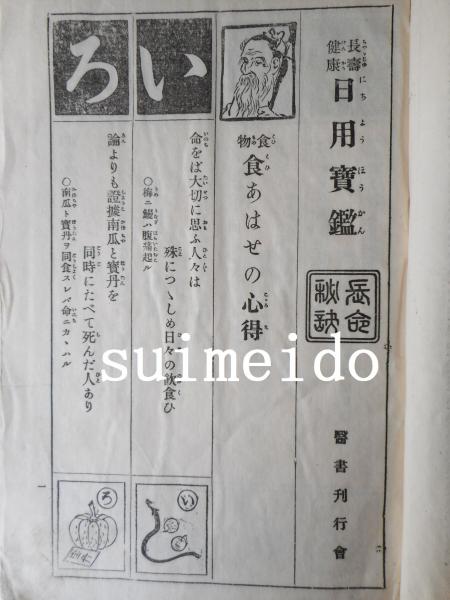 長壽
健康
日用寶鑑
長命
秘訣
醫書刊行會
食物
食あはせの心得
い
命をば大切に思ふ人々は
殊につゝしめ日々の飲食ひ
○梅ニ鰻ハ腹痛起ル
い
ろ
論よりも證據南瓜と寳丹を
同時にたべて死んだ人あり
○南瓜ト寳丹ヲ同食スレバ命ニカヽハル
ろ
一
suimeido